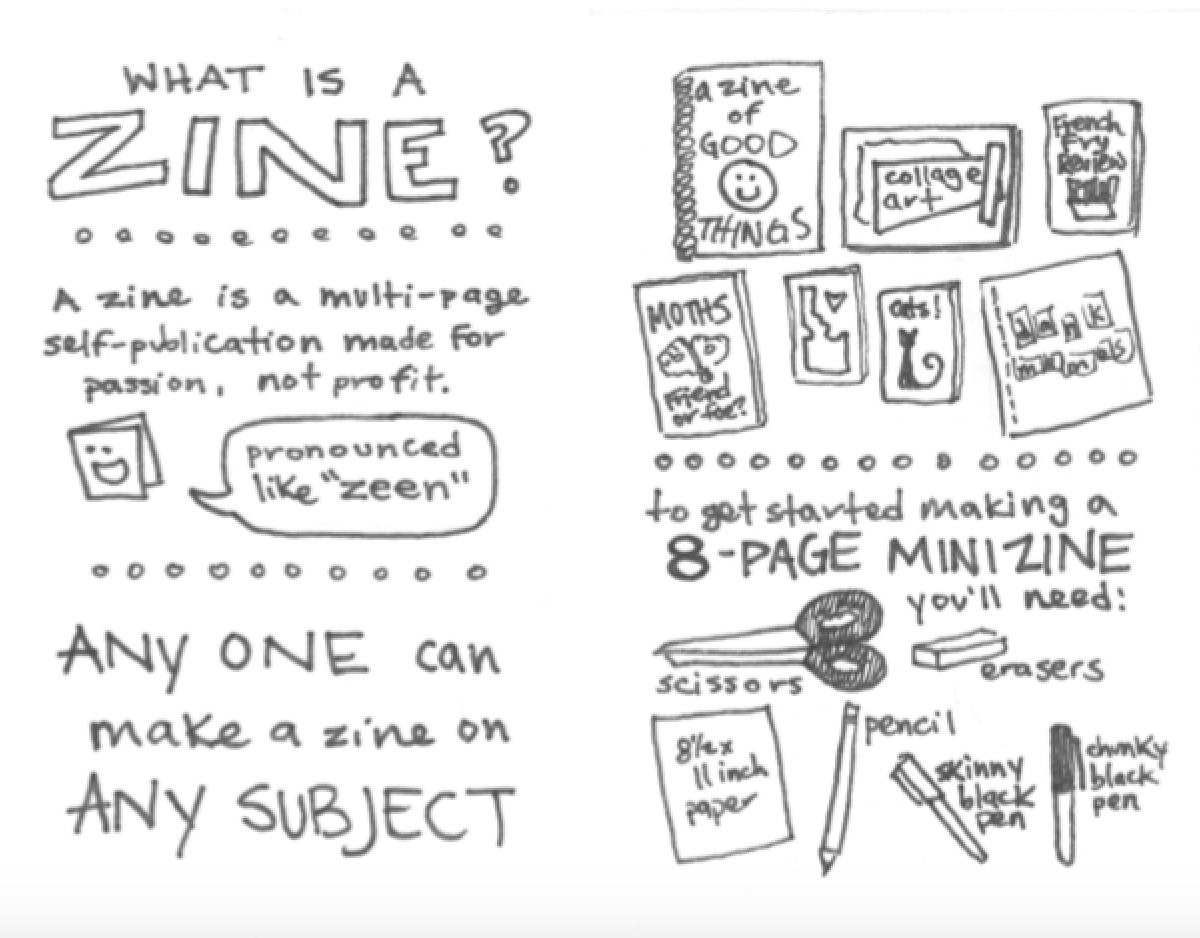 WHAT IS A
ZINE?
A zine is a multi-page
self-publication made for
passion, not profit.
pronounced
like "zeen"
ANY ONE can
make a zine on
ANY SUBJECT
a zine
of
GOOD
THINGS
collage
art
French
Fry
Review
MOTHS
Friend
or foe?
cats!
dank
memes
to get started making a
8-PAGE MINIZINE
you'll need:
scissors
erasers
8½ x
11 inch
paper
pencil
skinny
black
pen
chunky
black
pen